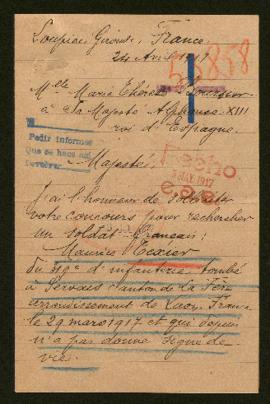 Loupiac Gironde, France
24 Avril 1917
Mlle Marie Thérèse
à Sa Majesté Alphonse XIII
roi d'Espagne
Pedir informes
Que se hace
Majesté,
J'ai l'honneur de solliciter
votre concours pour rechercher
un soldat Français:
Maurice Texier
du d'infanterie, tombé
à Servais canton de La Fère
arrondissement de Laon, France
le 29 mars 1917 et qui depuis
n'a pas donné signe de
vie.